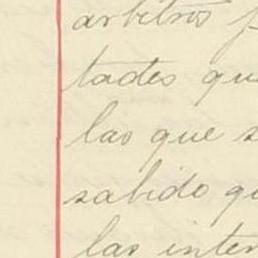 arbitros p
tades que
las que s
sabido qu
las inter